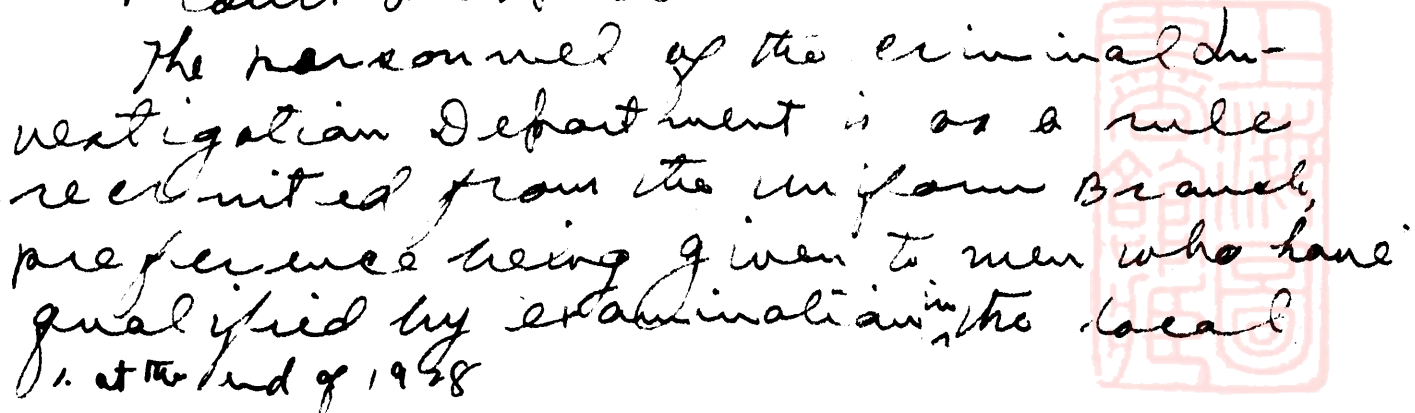 The personnel of the Criminal In-
vestigation Department is as a rule
recruited from the Uniform Branch,
preference being given to men who have
qualified by examination in the local
1. at the end of 1928
上海圖書館藏